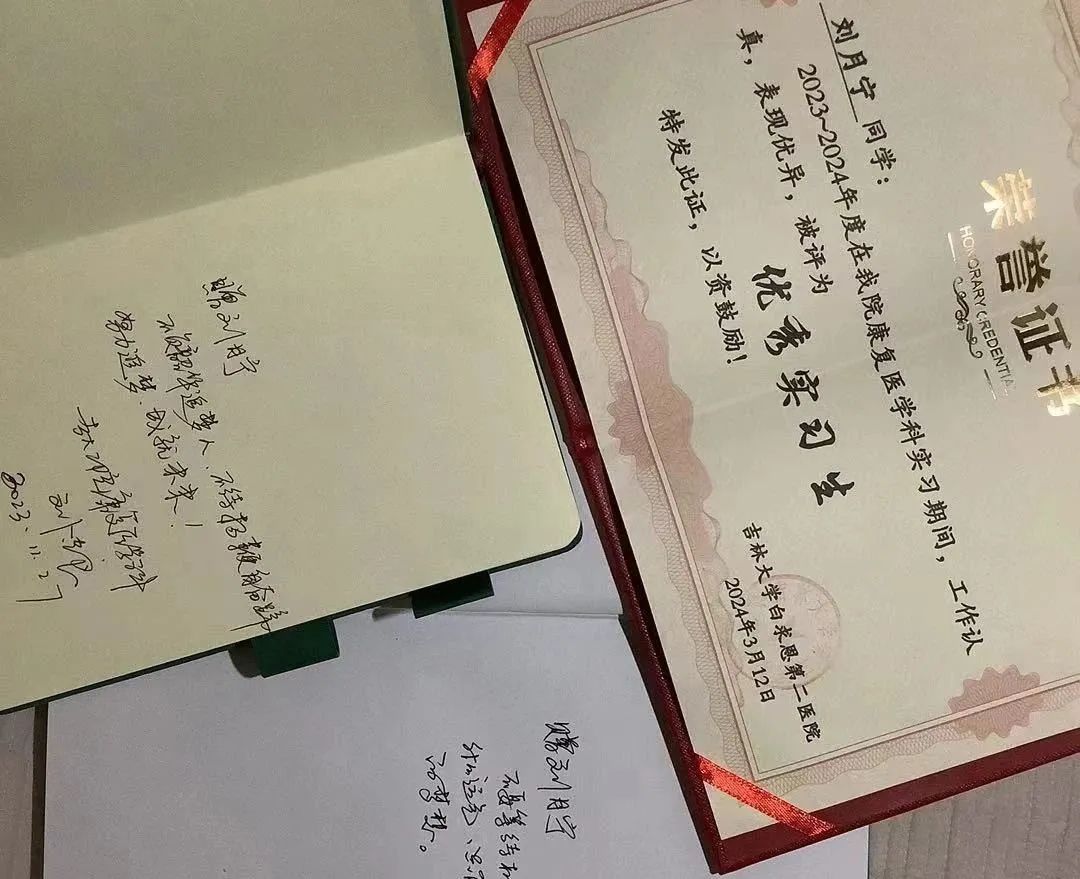 荣誉证书
HONORARY CREDENTIAL
刘月宁 同学：
2023~2024年度在我院康复医学科实习期间，工作认
真，表现优异，被评为
优秀实习生
特发此证，以资鼓励！
吉林大学白求恩第二医院
2024年3月12日
赠刘月宁
不负韶华追梦人、不待扬鞭自奋蹄
努力追梦、成就未来！
2023.11.27
赠刘月宁